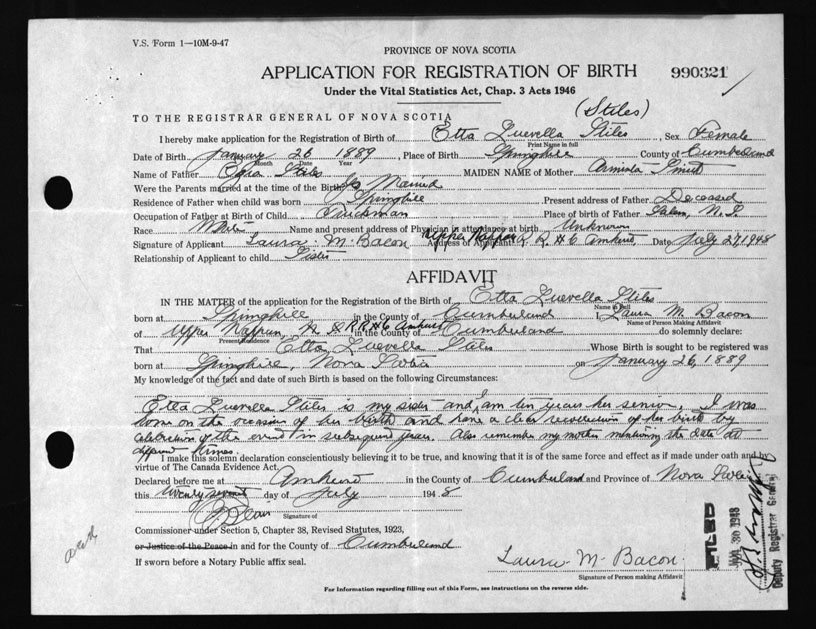 V.S. Form 1—10M-9-47
PROVINCE OF NOVA SCOTIA
APPLICATION FOR REGISTRATION OF BIRTH
990321
Under the Vital Statistics Act, Chap. 3 Acts 1946
(Stiles)
TO THE REGISTRAR GENERAL OF NOVA SCOTIA
I hereby make application for the Registration of Birth of Etta Luevella Stiles, Sex Female
Print Name in full
Date of Birth January 26 1889, Place of Birth Springhill County of Cumberland
Month Date Year
Name of Father Stiles MAIDEN NAME of Mother Smith
Were the Parents married at the time of the Birth Yes Married
Residence of Father when child was born Springhill Present address of Father Deceased
Occupation of Father at Birth of Child Truckman Place of birth of Father Salem, N.S.
Race White Name and present address of Physician in attendance at birth Unknown
Signature of Applicant Laura M. Bacon Address of Applicant Upper Nappan R.R. #6 Amherst, Date July 27, 1948
Relationship of Applicant to child Sister
AFFIDAVIT
IN THE MATTER of the application for the Registration of the Birth of Etta Luevella Stiles
Name in Full
born at Springhill in the County of Cumberland I, Laura M. Bacon
Name of Person Making Affidavit
of Upper Nappan, N.S. R.R. #6 Amherst in the County of Cumberland do solemnly declare:
Present Residence
That Etta Luevella Stiles Whose Birth is sought to be registered was
born at Springhill, Nova Scotia on January 26, 1889
My knowledge of the fact and date of such Birth is based on the following Circumstances:
Etta Luevella Stiles is my sister and I am ten years her senior. I was
home on the occasion of her birth and have a clear recollection of her birth by
celebration of the event in subsequent years. Also remember my mother mentioning the date at
different times.
I make this solemn declaration conscientiously believing it to be true, and knowing that it is of the same force and effect as if made under oath and by
virtue of The Canada Evidence Act.
Declared before me at Amherst in the County of Cumberland and Province of Nova Scotia
this twenty seventh day of July 1948
Signature of
Commissioner under Section 5, Chapter 38, Revised Statutes, 1923,
or Justice of the Peace in and for the County of Cumberland
If sworn before a Notary Public affix seal.
Laura M. Bacon
Signature of Person making Affidavit
For Information regarding filling out of this Form, see instructions on the reverse side.
FILED
JUL 30 1948
Deputy Registrar General